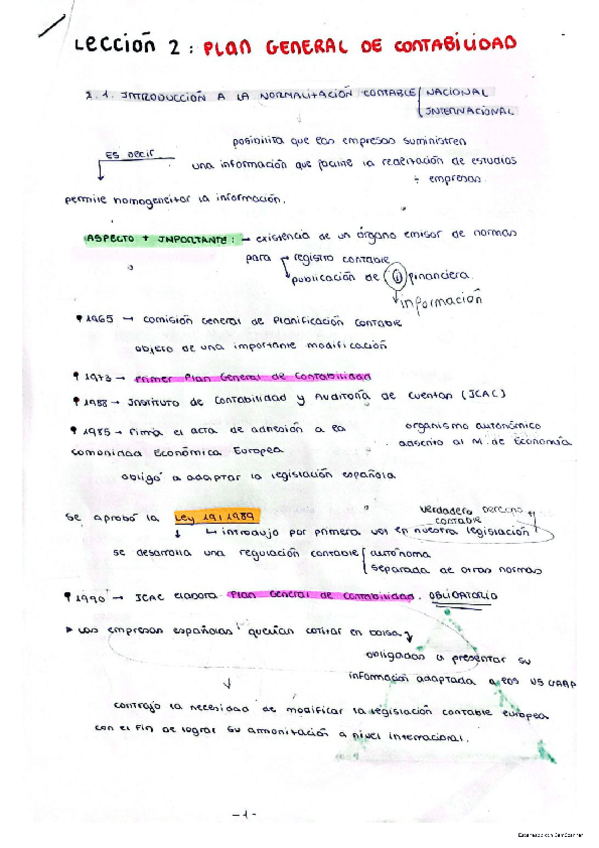 Lección 2: PLAN GENERAL DE CONTABILIDAD
2.1. INTRODUCCIÓN A LA NORMALITACIÓN CONTABLE NACIONAL
INTERNACIONAL
posibilita que las empresas suministren
ES DECIR
una información que facilite la realización de estudios
÷ empresas.
permite homogeneizar la información.
ASPECTO + IMPORTANTE: → existencia de un órgano emisor de normas
para → registro contable
publicación de (i) financiera.
información
1965 → Comisión General de Planificación Contable
objeto de una importante modificación
1973 → Primer Plan General de Contabilidad
1988 → Instituto de Contabilidad y Auditoría de Cuentas (ICAC)
organismo autonómico
adscrito al M. de Economía
1985 → Firma el acta de adhesión a la
comunidad Económica Europea
obligó a adaptar la legislación española
Se aprobó la Ley 19/1989
verdadero derecho
contable
↳ introdujo por primera vez en nuestra legislación
se desarrolla una regulación contable autónoma
separada de otras normas
1990 → ICAC elabora Plan General de Contabilidad. OBLIGATORIO
▸ Las empresas españolas querían cotizar en bolsa
obligadas a presentar su
información adaptada a los US GAAP
contrajo la necesidad de modificar la legislación contable europea
con el fin de lograr su armonitación a nivel internacional.
-1-
Escaneado con CamScanner